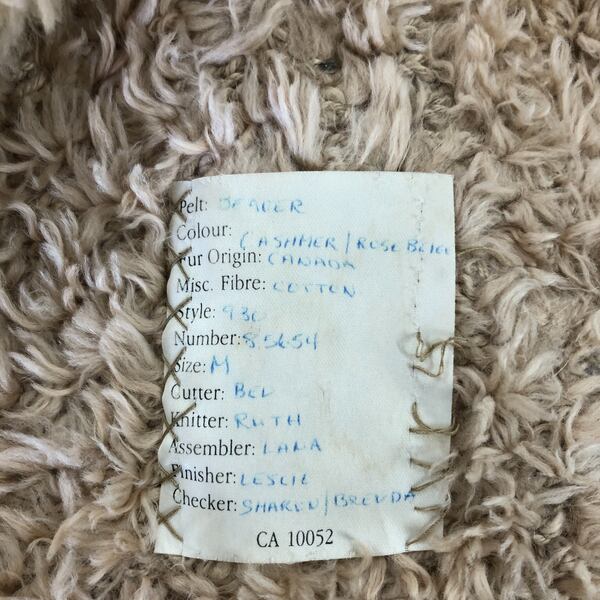 Pelt: BEAVER
Colour: CASHMER/ROSE BEIGE
Fur Origin: CANADA
Misc. Fibre: COTTON
Style: 930
Number: 85654
Size: M
Cutter: BEV
Knitter: RUTH
Assembler: LANA
Finisher: LESLIE
Checker: SHARON/BRENDA
CA 10052